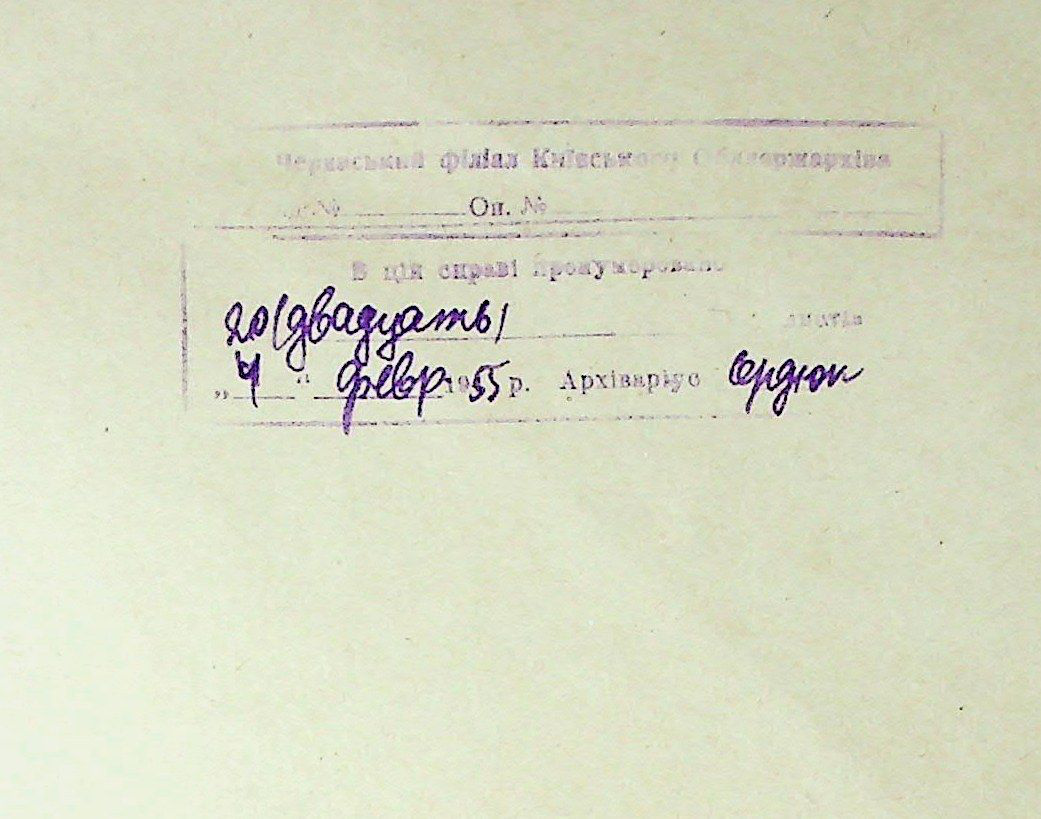 Черкаський філіал Київського Облдержархіва
№ Оп. №
В цій справі пронумеровано
20 (двадцать) листів
„4“ февр 1955 р. Архіваріус